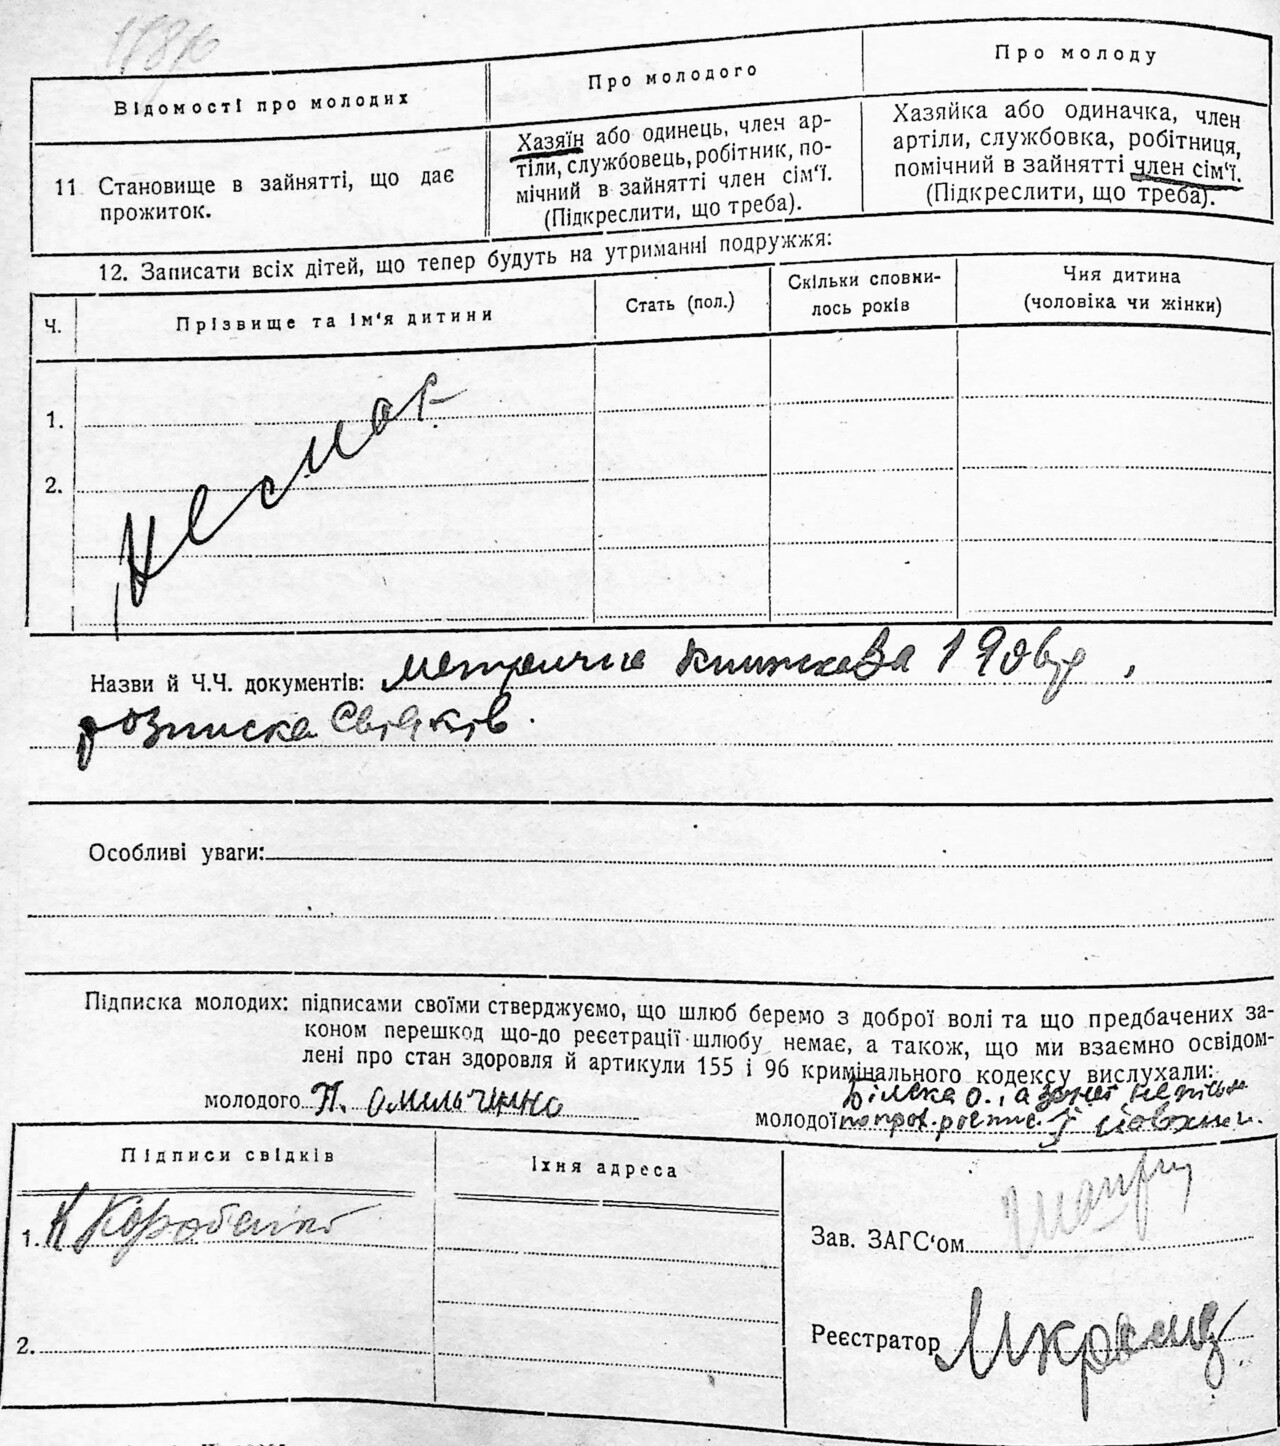 Відомості про молодих
Про молодого
Про молоду
11. Становище в зайнятті, що дає
прожиток.
Хазяїн або одинець, член ар-
тіли, службовець, робітник, по-
мічний в зайнятті член сім'ї.
(Підкреслити, що треба).
Хазяйка або одиначка, член
артіли, службовка, робітниця,
помічний в зайнятті член сім'ї.
(Підкреслити, що треба).
12. Записати всіх дітей, що тепер будуть на утриманні подружжя:
Ч.
Прізвище та ім'я дитини
Стать (пол.)
Скільки сповни-
лось років
Чия дитина
(чоловіка чи жінки)
1.
2.
Назви й Ч.Ч. документів:
розписка свідків.
Особливі уваги:
Підписка молодих: підписами своїми стверджуємо, що шлюб беремо з доброї волі та що предбачених за-
коном перешкод що-до реєстрації шлюбу немає, а також, що ми взаємно освідом-
лені про стан здоровля й артикули 155 і 96 кримінального кодексу вислухали:
молодого П. Омильченко
молодої
Підписи свідків
Їхня адреса
1. К Коробенко
2.
Зав. ЗАГС'ом
Реєстратор